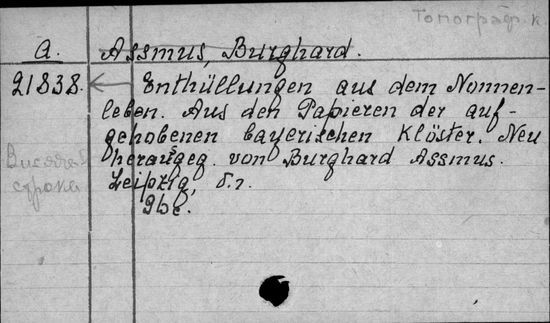 Топограф. к
А. Assmus, Burghard.
21838. Enthüllungen aus dem Nonnen-
leben. Aus den Papieren der auf-
gehobenen bayerischen Klöster. Neu
herausgeg. von Burghard Assmus.
Leipzig, б.г.
Висячая
строка